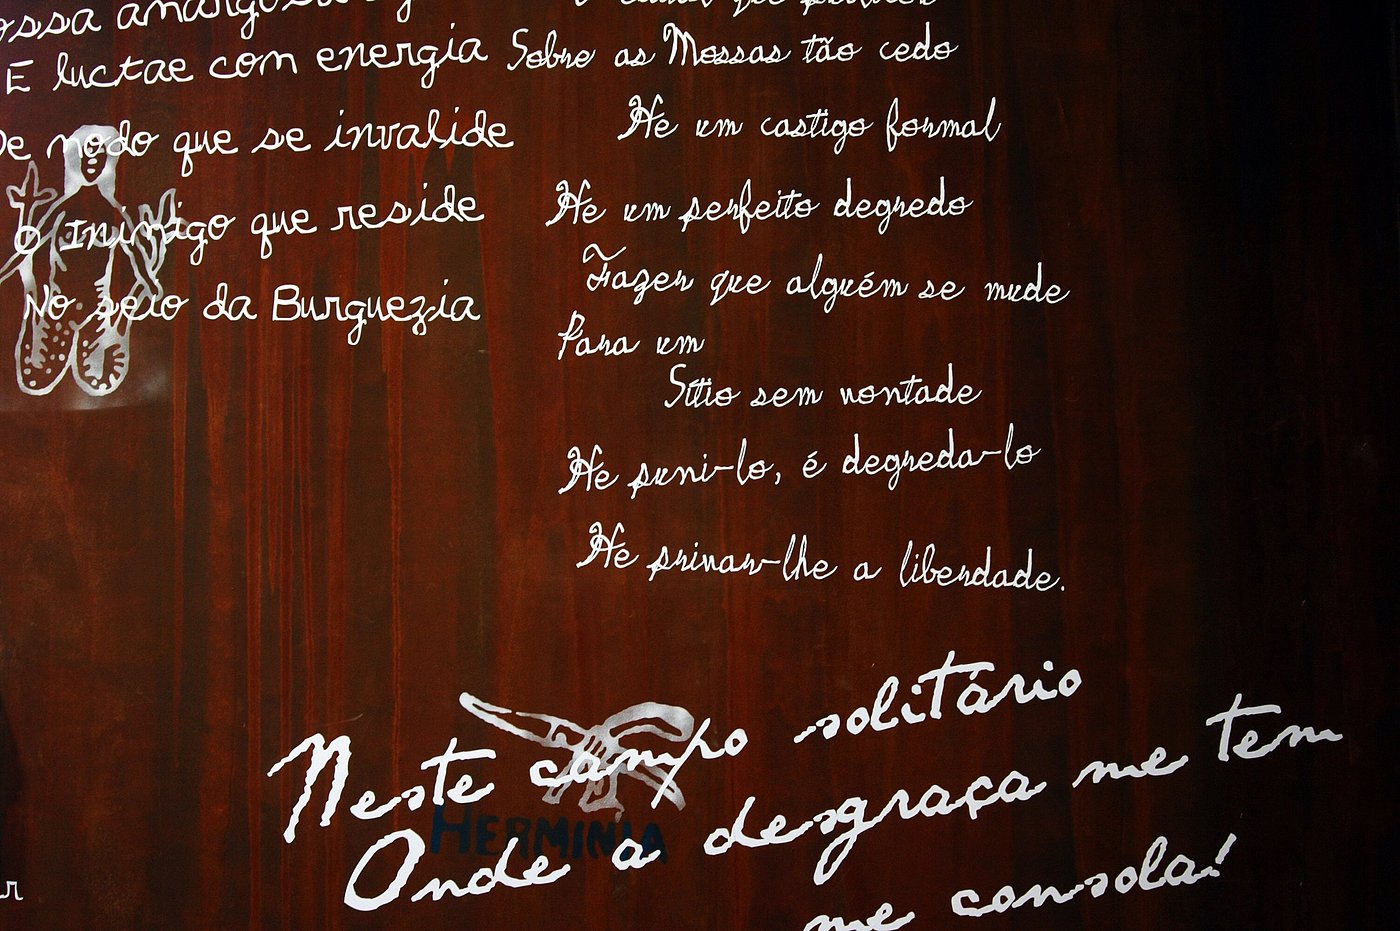 E luctae com energia
De modo que se invalide
O Inimigo que reside
No seio da Burguezia
Sobre as Mossas tão cedo
He um castigo formal
He um perfeito degredo
Fazer que alguém se mude
Para um
Sítio sem vontade
He puni-lo, é degreda-lo
He privar-lhe a liberdade.
Neste campo solitário
Onde a desgraça me tem
me consola!
HERMINIA